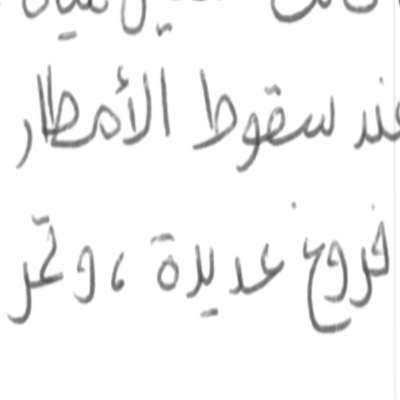 عند سقوط الأمطار
فروع عديدة ، و تمر